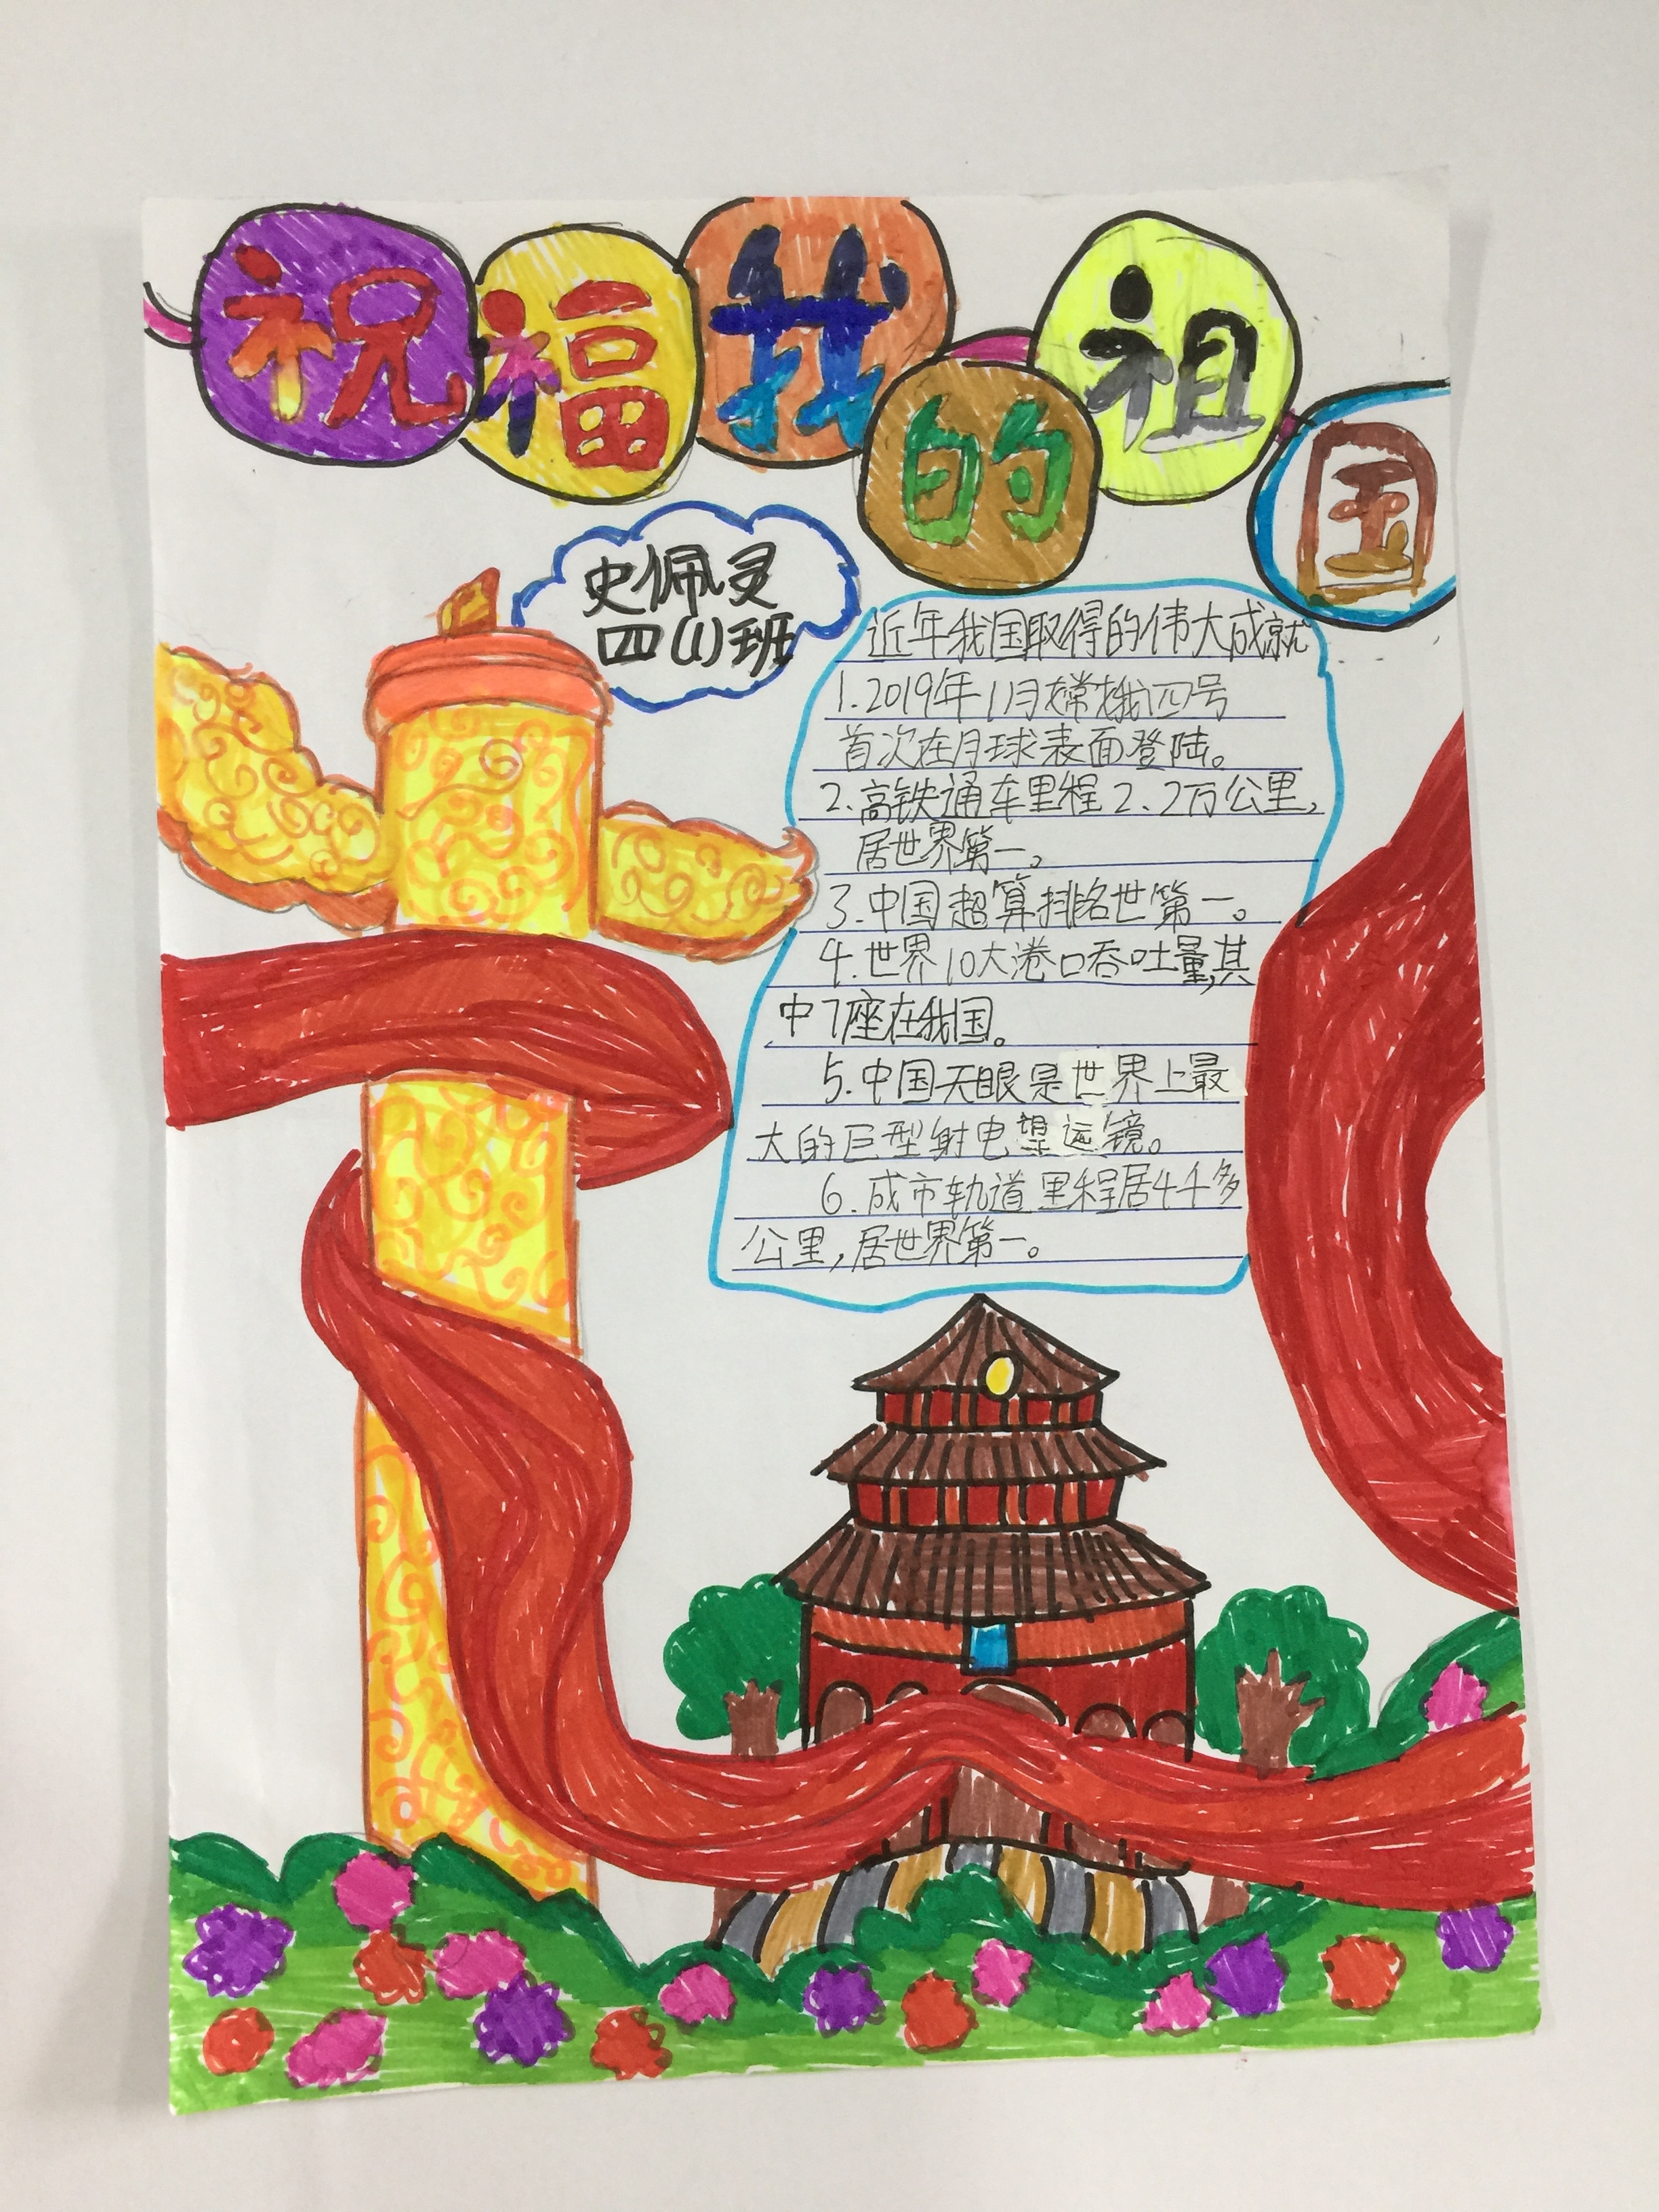 祝福我的祖国
史佩灵
四(1)班
近年我国取得的伟大成就
1.2019年1月嫦娥四号
首次在月球表面登陆。
2.高铁通车里程2.2万公里,
居世界第一。
3.中国超算排名世第一。
4.世界10大港口吞吐量,其
中7座在我国。
5.中国天眼是世界上最
大的巨型射电望远镜。
6.成市轨道里程居4千多
公里,居世界第一。